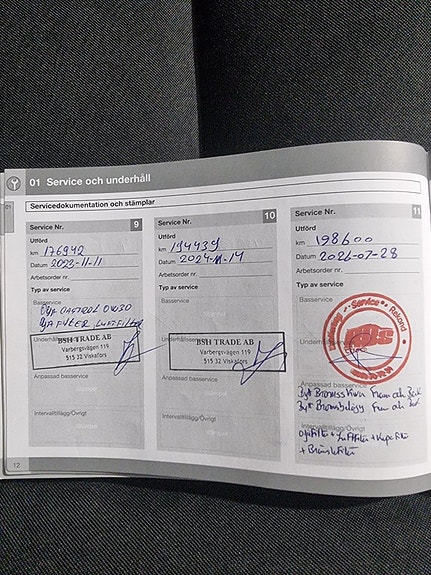 01 Service och underhåll
Servicedokumentation och stämplar
Service Nr. 9
Utförd
km 176942
Datum 2023-11-11
Arbetsorder nr.
Typ av service
Basservice
Olja CASTROL 0W30
OLJAFILTER, LUFTFILTER
BSH TRADE AB
Varbergsvägen 119
515 32 Viskafors
Anpassad basservice
Intervalltillägg/Övrigt
12
Service Nr. 10
Utförd
km 194439
Datum 2024-11-14
Arbetsorder nr.
Typ av service
Basservice
BSH TRADE AB
Varbergsvägen 119
515 32 Viskafors
Anpassad basservice
Intervalltillägg/Övrigt
Service Nr. 11
Utförd
km 198600
Datum 2026-07-28
Arbetsorder nr.
Typ av service
Service
Rekond
Fram och Bak
Fram och Bak
Oljefilter + Luftfilter + Kupefilter
+ Bränslefilter